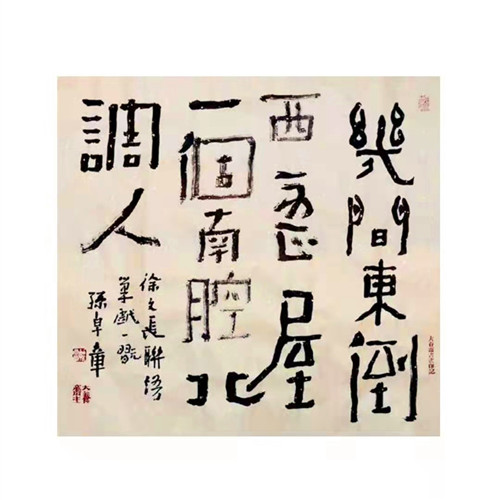 幾間東倒
西歪屋
一個南腔北
調人
徐文長聯語
戲一
孫卓章